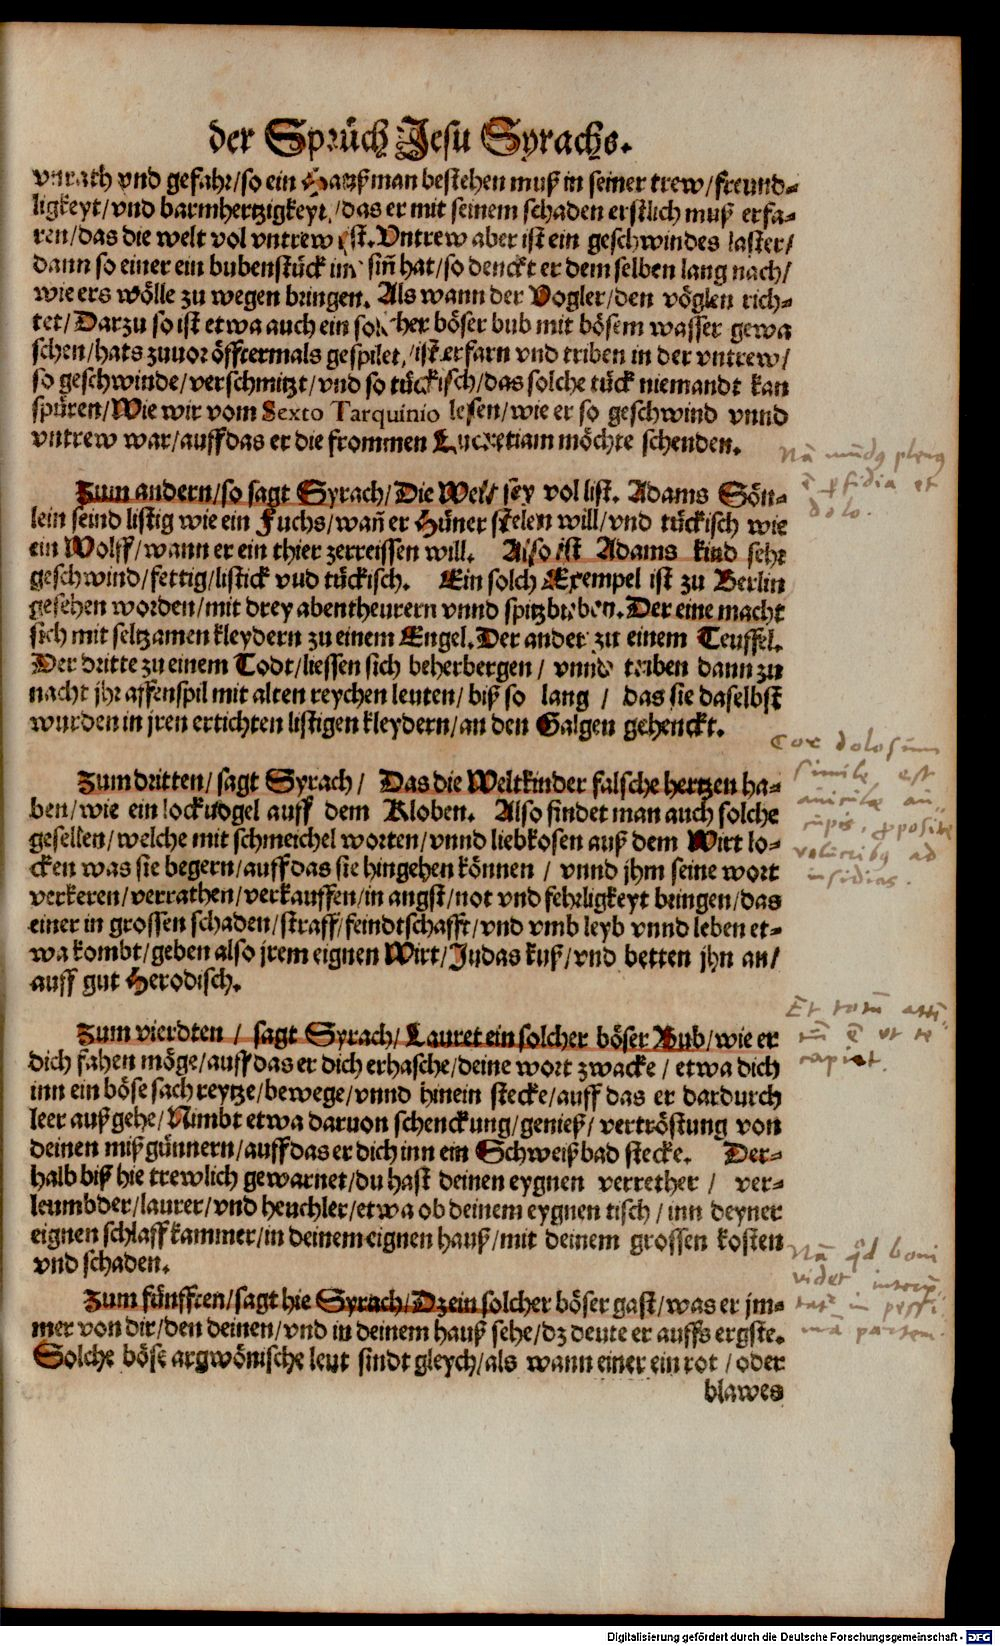 der Sprüch Jesu Syrachs.
vnrath vnd gefahr/so ein Haußman bestehen muß in seiner trew/freund-
ligkeyt/vnd barmhertzigkeyt/das er mit seinem schaden erstlich muß erfa-
ren/das die welt vol vntrew ist. Vntrew aber ist ein geschwindes laster/
dann so einer ein bubenstück im siñ hat/so denckt er dem selben lang nach/
wie ers wölle zu wegen bringen. Als wann der Vogler/den vöglen rich-
tet/Darzu so ist etwa auch ein solcher böser bub mit bösem wasser gewa
schen/hats zuuor öfftermals gespilet/ist erfarn vnd triben in der vntrew/
so geschwinde/verschmitzt/vnd so tückisch/das solche tück niemandt kan
spüren/Wie wir vom Sexto Tarquinio lesen/wie er so geschwind vnnd
vntrew war/auff das er die frommen Lucretiam möchte schenden.
Nā mūdq plenq
ē pfidia et
dolo.
Zum andern/so sagt Syrach/Die Welt sey vol list. Adams Sön-
lein seind listig wie ein Fuchs/wañ er Hüner stelen will/vnd tückisch wie
ein Wolff/wann er ein thier zerreissen will. Also ist Adams kind sehr
geschwind/fettig/listick vnd tückisch. Ein solch Exempel ist zu Berlin
gesehen worden/mit drey abentheurern vnnd spitzbuben. Der eine macht
sich mit seltzamen kleydern zu einem Engel. Der ander zu einem Teuffel.
Der dritte zu einem Todt/liessen sich beherbergen/ vnnd triben dann zu
nacht jhr affenspil mit alten reychen leuten/ biß so lang / das sie daselbst
wurden in jren ertichten listigen kleydern/an den Galgen gehenckt.
Cor dolosum
simile est
auiculæ au-
cupis, pposite
volucribq ad
insidias.
Zum dritten/ sagt Syrach/ Das die Weltkinder falsche hertzen ha-
ben/wie ein lockuogel auff dem Kloben. Also findet man auch solche
gesellen/welche mit schmeichel worten/vnnd liebkosen auß dem Wirt lo-
cken was sie begern/auff das sie hingehen können / vnnd jhm seine wort
verkeren/verrathen/verkauffen/in angst/not vnd fehrligkeyt bringen/das
einer in grossen schaden/straff/feindtschafft/vnd vmb leyb vnnd leben et-
wa kombt/geben also jrem eignen Wirt/Judas kuß/vnd betten jhn an/
auff gut Herodisch.
Et totū
ē ut te
capiat.
Zum vierdten / sagt Syrach/Lauret ein solcher böser Bub/wie er
dich fahen möge/auff das er dich erhasche/deine wort zwacke/ etwa dich
inn ein böse sach reytze/bewege/vnnd hinein stecke/auff das er dardurch
leer auß gehe/Nimbt etwa daruon schenckung/genieß/ vertröstung von
deinen mißgünnern/auff das er dich inn ein Schweißbad stecke. Der-
halb biß hie trewlich gewarnet/du hast deinen eygnen verrether / ver-
leumbder/laurer/vnd heuchler/etwa ob deinem eygnen tisch/inn deyner
eignen schlaff kammer/in deinem eignen hauß/mit deinem grossen kosten
vnd schaden.
Nā qd boni
videt interp-
tat in pessi
mā partem.
Zum fünfften/sagt hie Syrach/Dz ein solcher böser gast/was er jm-
mer von dir/den deinen/vnd in deinem hauß sehe/dz deute er auffs ergste.
Solche böse argwönische leut sindt gleych/als wann einer ein rot / oder
blawes
Digitalisierung gefördert durch die Deutsche Forschungsgemeinschaft - DFG